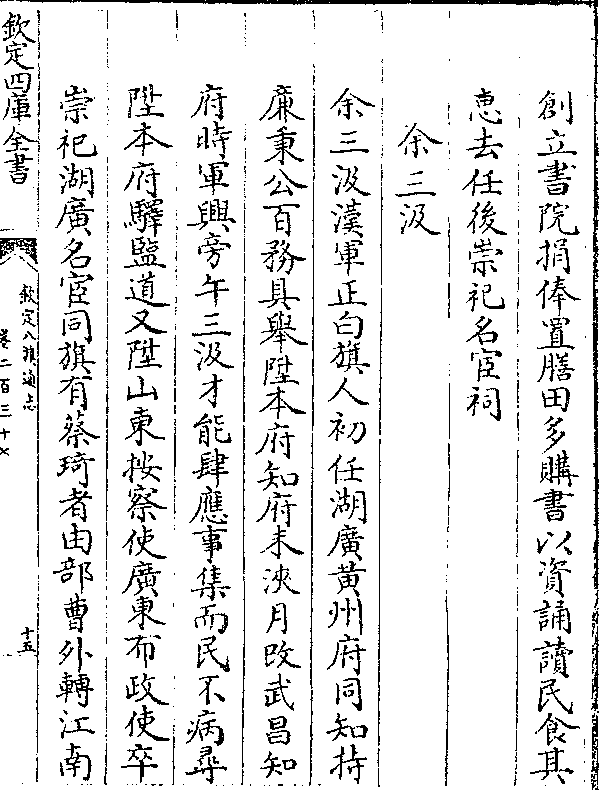 創立書院捐俸置膳田多購書以資誦讀民食其
惠去任後崇祀名宦祠
余三汲
余三汲漢軍正白旗人初任湖廣黄州府同知持
廉秉公百務具舉陞本府知府未浹月改武昌知
府時軍興旁午三汲才能肆應事集而民不病尋
陞本府驛鹽道又陞山東按察使廣東布政使卒
崇祀湖廣名宦同旗有蔡琦者由部曹外轉江南
欽定四庫全書
欽定八旗通志
卷二百三十
十五